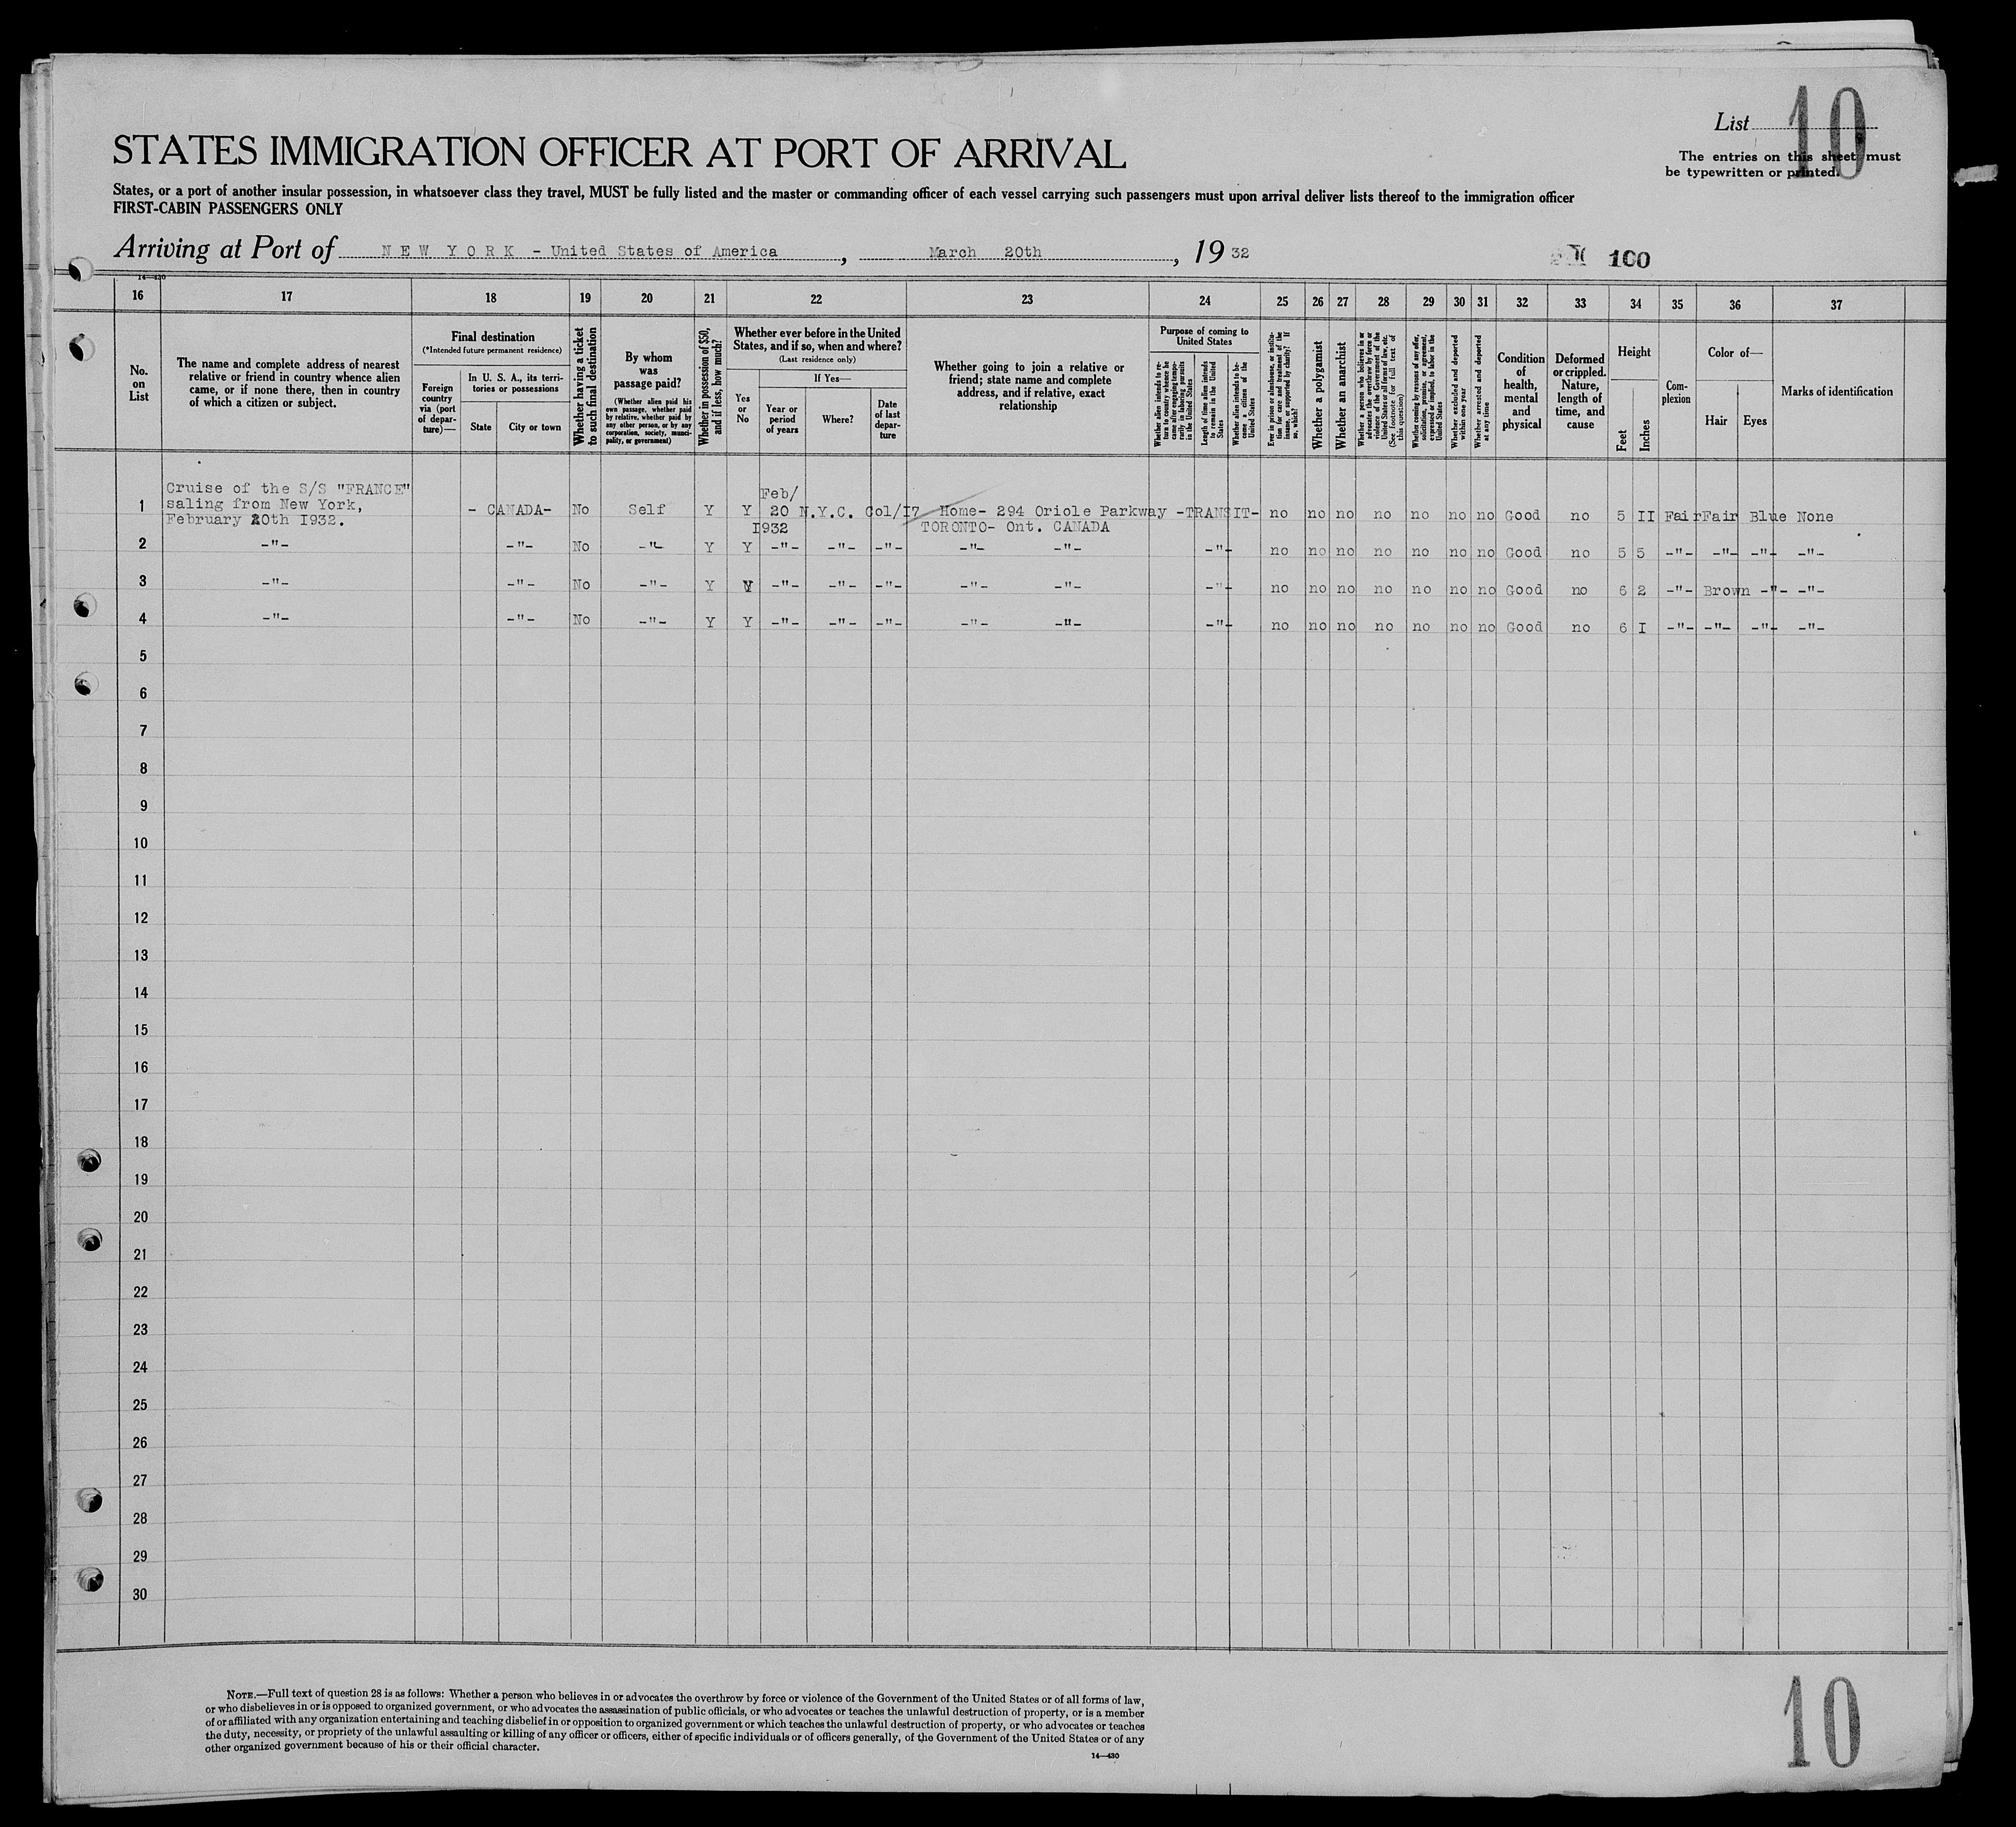 List
10
The entries on this sheet must
be typewritten or printed.
STATES IMMIGRATION OFFICER AT PORT OF ARRIVAL
States, or a port of another insular possession, in whatsoever class they travel, MUST be fully listed and the master or commanding officer of each vessel carrying such passengers must upon arrival deliver lists thereof to the immigration officer
FIRST-CABIN PASSENGERS ONLY
Arriving at Port of NEW YORK - United States of America, March 20th, 1932
100
14—430
16 17 18 19 20 21 22 23 24 25 26 27 28 29 30 31 32 33 34 35 36 37
No.
on
List
The name and complete address of nearest
relative or friend in country whence alien
came, or if none there, then in country
of which a citizen or subject.
Final destination
(*Intended future permanent residence)
Foreign
country
via (port
of depar-
ture)—
In U. S. A., its terri-
tories or possessions
State
City or town
Whether having a ticket
to such final destination
By whom
was
passage paid?
(Whether alien paid his
own passage, whether paid
by relative, whether paid by
any other person, or by any
corporation, society, munici-
pality, or government)
Whether in possession of $50,
and if less, how much?
Whether ever before in the United
States, and if so, when and where?
(Last residence only)
Yes
or
No
If Yes—
Year or
period
of years
Where?
Date
of last
depar-
ture
Whether going to join a relative or
friend; state name and complete
address, and if relative, exact
relationship
Purpose of coming to
United States
Whether alien intends to re-
turn to country whence he
came after engaging tempo-
rarily in laboring pursuits
in the United States
Length of time alien intends
to remain in the United
States
Whether alien intends to be-
come a citizen of the
United States
Ever in prison or almshouse, or institu-
tion for care and treatment of the
insane, or supported by charity? If
so, which?
Whether a polygamist
Whether an anarchist
Whether a person who believes in or
advocates the overthrow by force or
violence of the Government of the
United States or all forms of law, etc.
(See footnote for full text of
this question)
Whether coming by reasons of any offer,
solicitation, promise, or agreement,
expressed or implied, to labor in the
United States
Whether excluded and deported
within one year
Whether arrested and deported
at any time
Condition
of
health,
mental
and
physical
Deformed
or crippled.
Nature,
length of
time, and
cause
Height
Feet
Inches
Com-
plexion
Color of—
Hair
Eyes
Marks of identification
Cruise of the S/S "FRANCE"
saling from New York,
February 20th I932.
1 - CANADA- No Self Y Y Feb/ 20 I932 N.Y.C. Col/I7 Home- 294 Oriole Parkway -TRANSIT- no no no no no no no Good no 5 II Fair Fair Blue None
TORONTO- Ont. CANADA
2 -"- -"- No -"- Y Y -"- -"- -"- -"- -"- -"- no no no no no no no Good no 5 5 -"- -"- -"- -"-
3 -"- -"- No -"- Y Y -"- -"- -"- -"- -"- -"- no no no no no no no Good no 6 2 -"- Brown -"- -"-
4 -"- -"- No -"- Y Y -"- -"- -"- -"- -"- -"- no no no no no no no Good no 6 I -"- -"- -"- -"-
5
6
7
8
9
10
11
12
13
14
15
16
17
18
19
20
21
22
23
24
25
26
27
28
29
30
NOTE.—Full text of question 28 is as follows: Whether a person who believes in or advocates the overthrow by force or violence of the Government of the United States or of all forms of law,
or who disbelieves in or is opposed to organized government, or who advocates the assassination of public officials, or who advocates or teaches the unlawful destruction of property, or is a member
of or affiliated with any organization entertaining and teaching disbelief in or opposition to organized government or which teaches the unlawful destruction of property, or who advocates or teaches
the duty, necessity, or propriety of the unlawful assaulting or killing of any officer or officers, either of specific individuals or of officers generally, of the Government of the United States or of any
other organized government because of his or their official character.
14—430
10